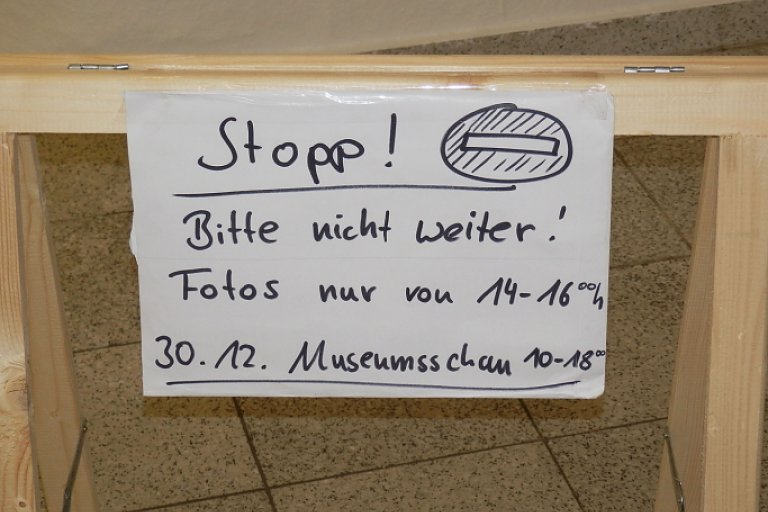 Stopp!
Bitte nicht weiter!
Fotos nur von 14-16⁰⁰h
30.12. Museumsschau 10-18⁰⁰